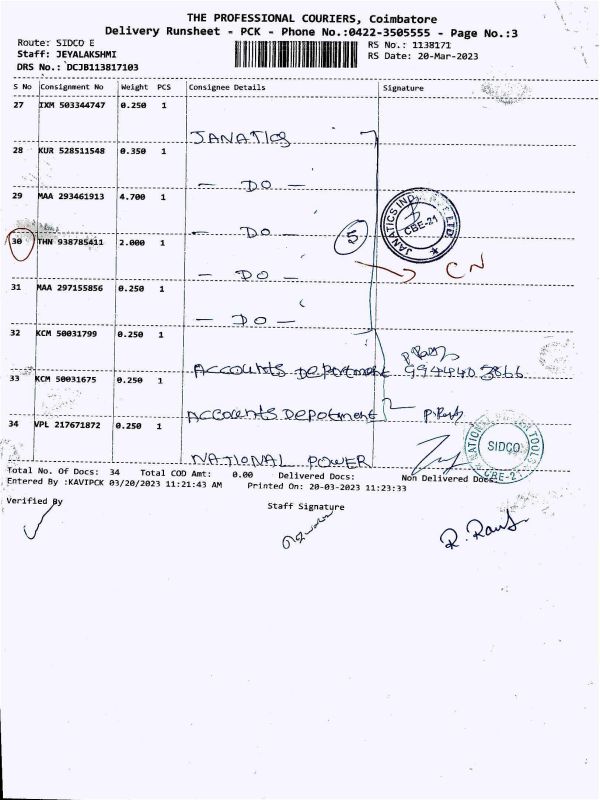 THE PROFESSIONAL COURIERS, Coimbatore
Delivery Runsheet - PCK - Phone No.:0422-3505555 - Page No.:3
Route: SIDCO E RS No.: 1138171
Staff: JEYALAKSHMI RS Date: 20-Mar-2023
DRS No.: DCJB113817103
S No Consignment No Weight PCS Consignee Details Signature
27 IXM 503344747 0.250 1
JANATICS
28 KUR 528511548 0.350 1
— DO —
29 MAA 293461913 4.700 1
— DO — 5 JANATICS CBE-21 LTD.
30 THN 938785411 2.000 1
— DO — CN
31 MAA 297155856 0.250 1
— DO —
32 KCM 50031799 0.250 1
Accounts Department
33 KCM 50031675 0.250 1
Accounts Depotment
34 VPL 217671872 0.250 1
NATIONAL POWER NATIONAL POWER TOOLS SIDCO CBE-21
Total No. Of Docs: 34 Total COD Amt: 0.00 Delivered Docs: Non Delivered Docs:
Entered By :KAVIPCK 03/20/2023 11:21:43 AM Printed On: 20-03-2023 11:23:33
Verified By Staff Signature